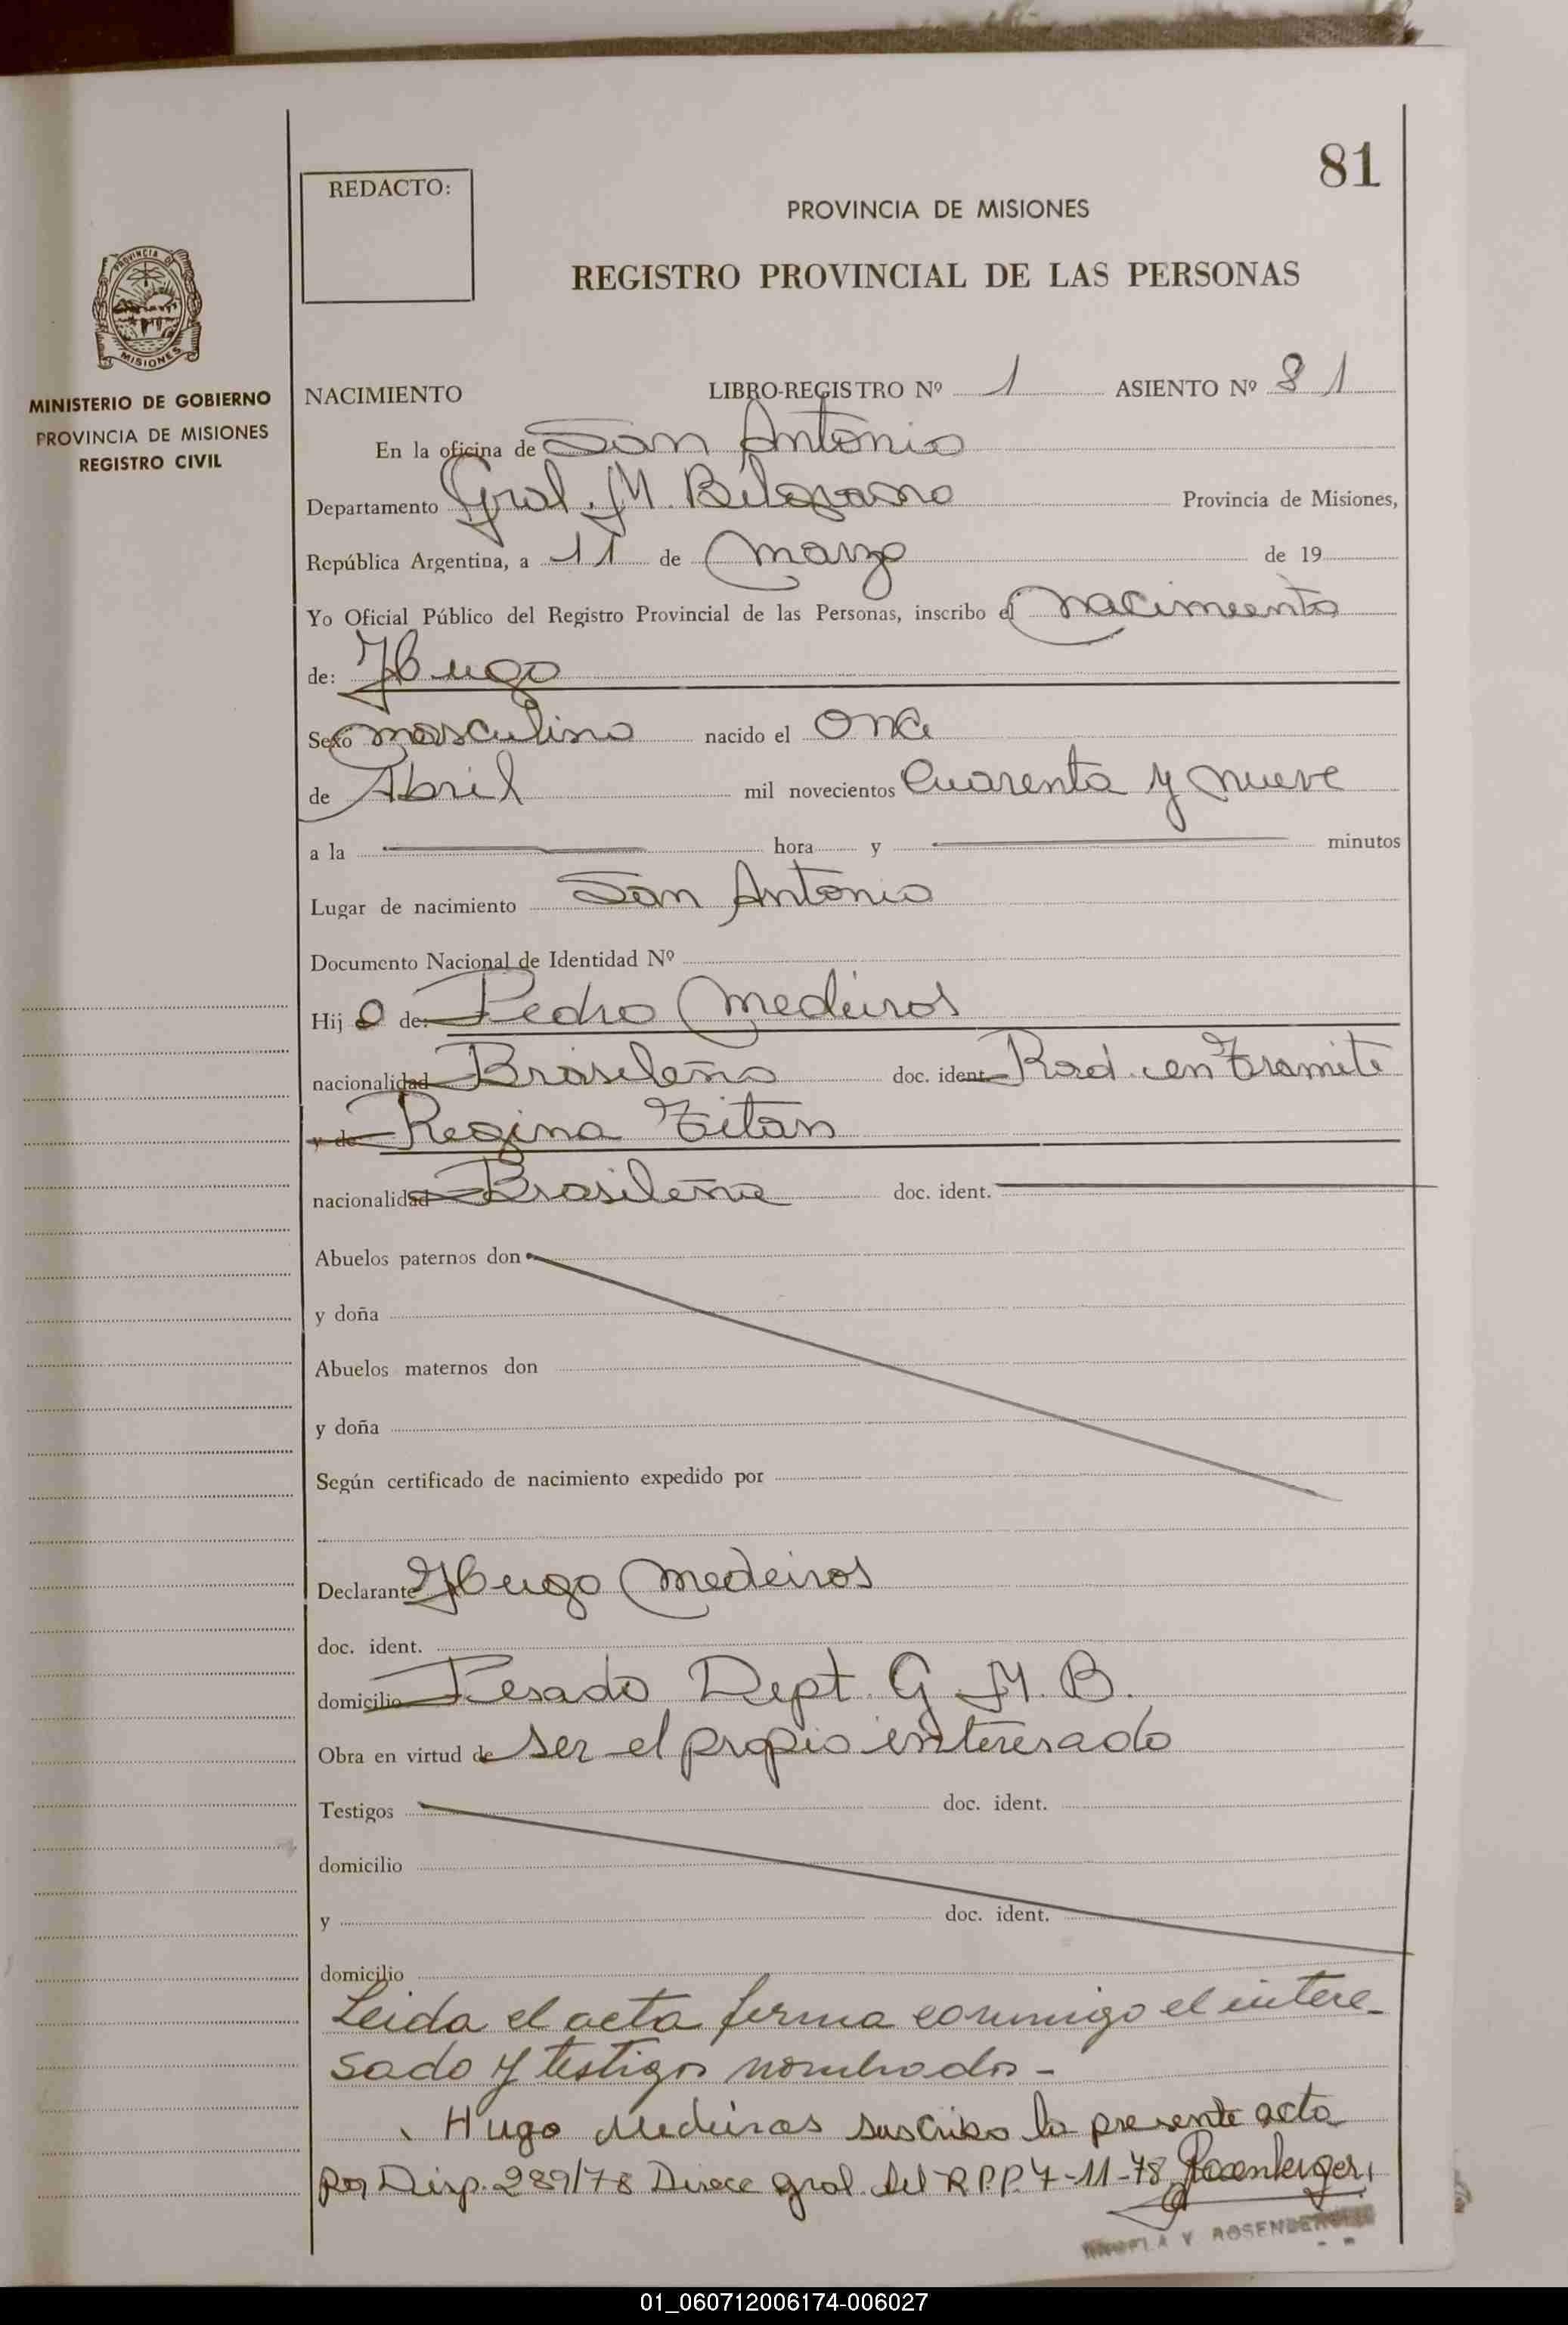 81
REDACTO:
PROVINCIA DE MISIONES
REGISTRO PROVINCIAL DE LAS PERSONAS
PROVINCIA DE
MISIONES
MINISTERIO DE GOBIERNO
PROVINCIA DE MISIONES
REGISTRO CIVIL
NACIMIENTO LIBRO-REGISTRO Nº 1 ASIENTO Nº 81
En la oficina de San Antonio
Departamento Gral. M. Belgrano Provincia de Misiones,
República Argentina, a 11 de marzo de 19
Yo Oficial Público del Registro Provincial de las Personas, inscribo el nacimiento
de: Hugo
Sexo masculino nacido el Once
de Abril mil novecientos Cuarenta y nueve
a la hora y minutos
Lugar de nacimiento San Antonio
Documento Nacional de Identidad Nº
Hij o de: Pedro Medeiros
nacionalidad Brasileño doc. ident. Rad. en tramite
y de Regina Titan
nacionalidad Brasileña doc. ident.
Abuelos paternos don
y doña
Abuelos maternos don
y doña
Según certificado de nacimiento expedido por
Declarante Hugo Medeiros
doc. ident.
domicilio Pesado Dept. G M. B.
Obra en virtud de ser el propio interesado
Testigos doc. ident.
domicilio
y doc. ident.
domicilio
Leida el acta firma conmigo el intere-
sado y testigos nombrados -
Hugo Medeiros suscribo la presente acta
por Disp. 289/78 Direcc gral. del R.P.P. 7-11-78
01_060712006174-006027